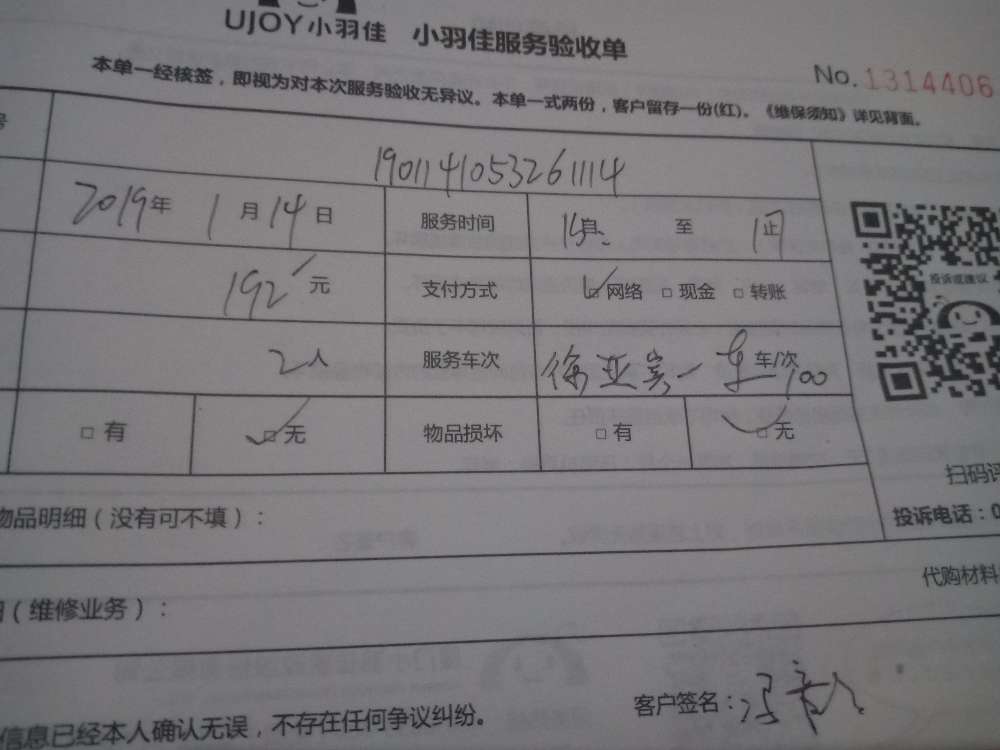 UJOY小羽佳 小羽佳服务验收单
No. 1314406
本单一经核签，即视为对本次服务验收无异议。本单一式两份，客户留存一份(红)。《维保须知》详见背面。
号
1901141053261114
2019年 1月14日 服务时间 至
192元 支付方式 □网络 □现金 □转账
2人 服务车次 徐亚宾一车 车/次 100
□有 □无 物品损坏 □有 □无
投诉或建议
扫码评
投诉电话：0
物品明细（没有可不填）：
代购材料
（维修业务）：
客户签名：
信息已经本人确认无误，不存在任何争议纠纷。